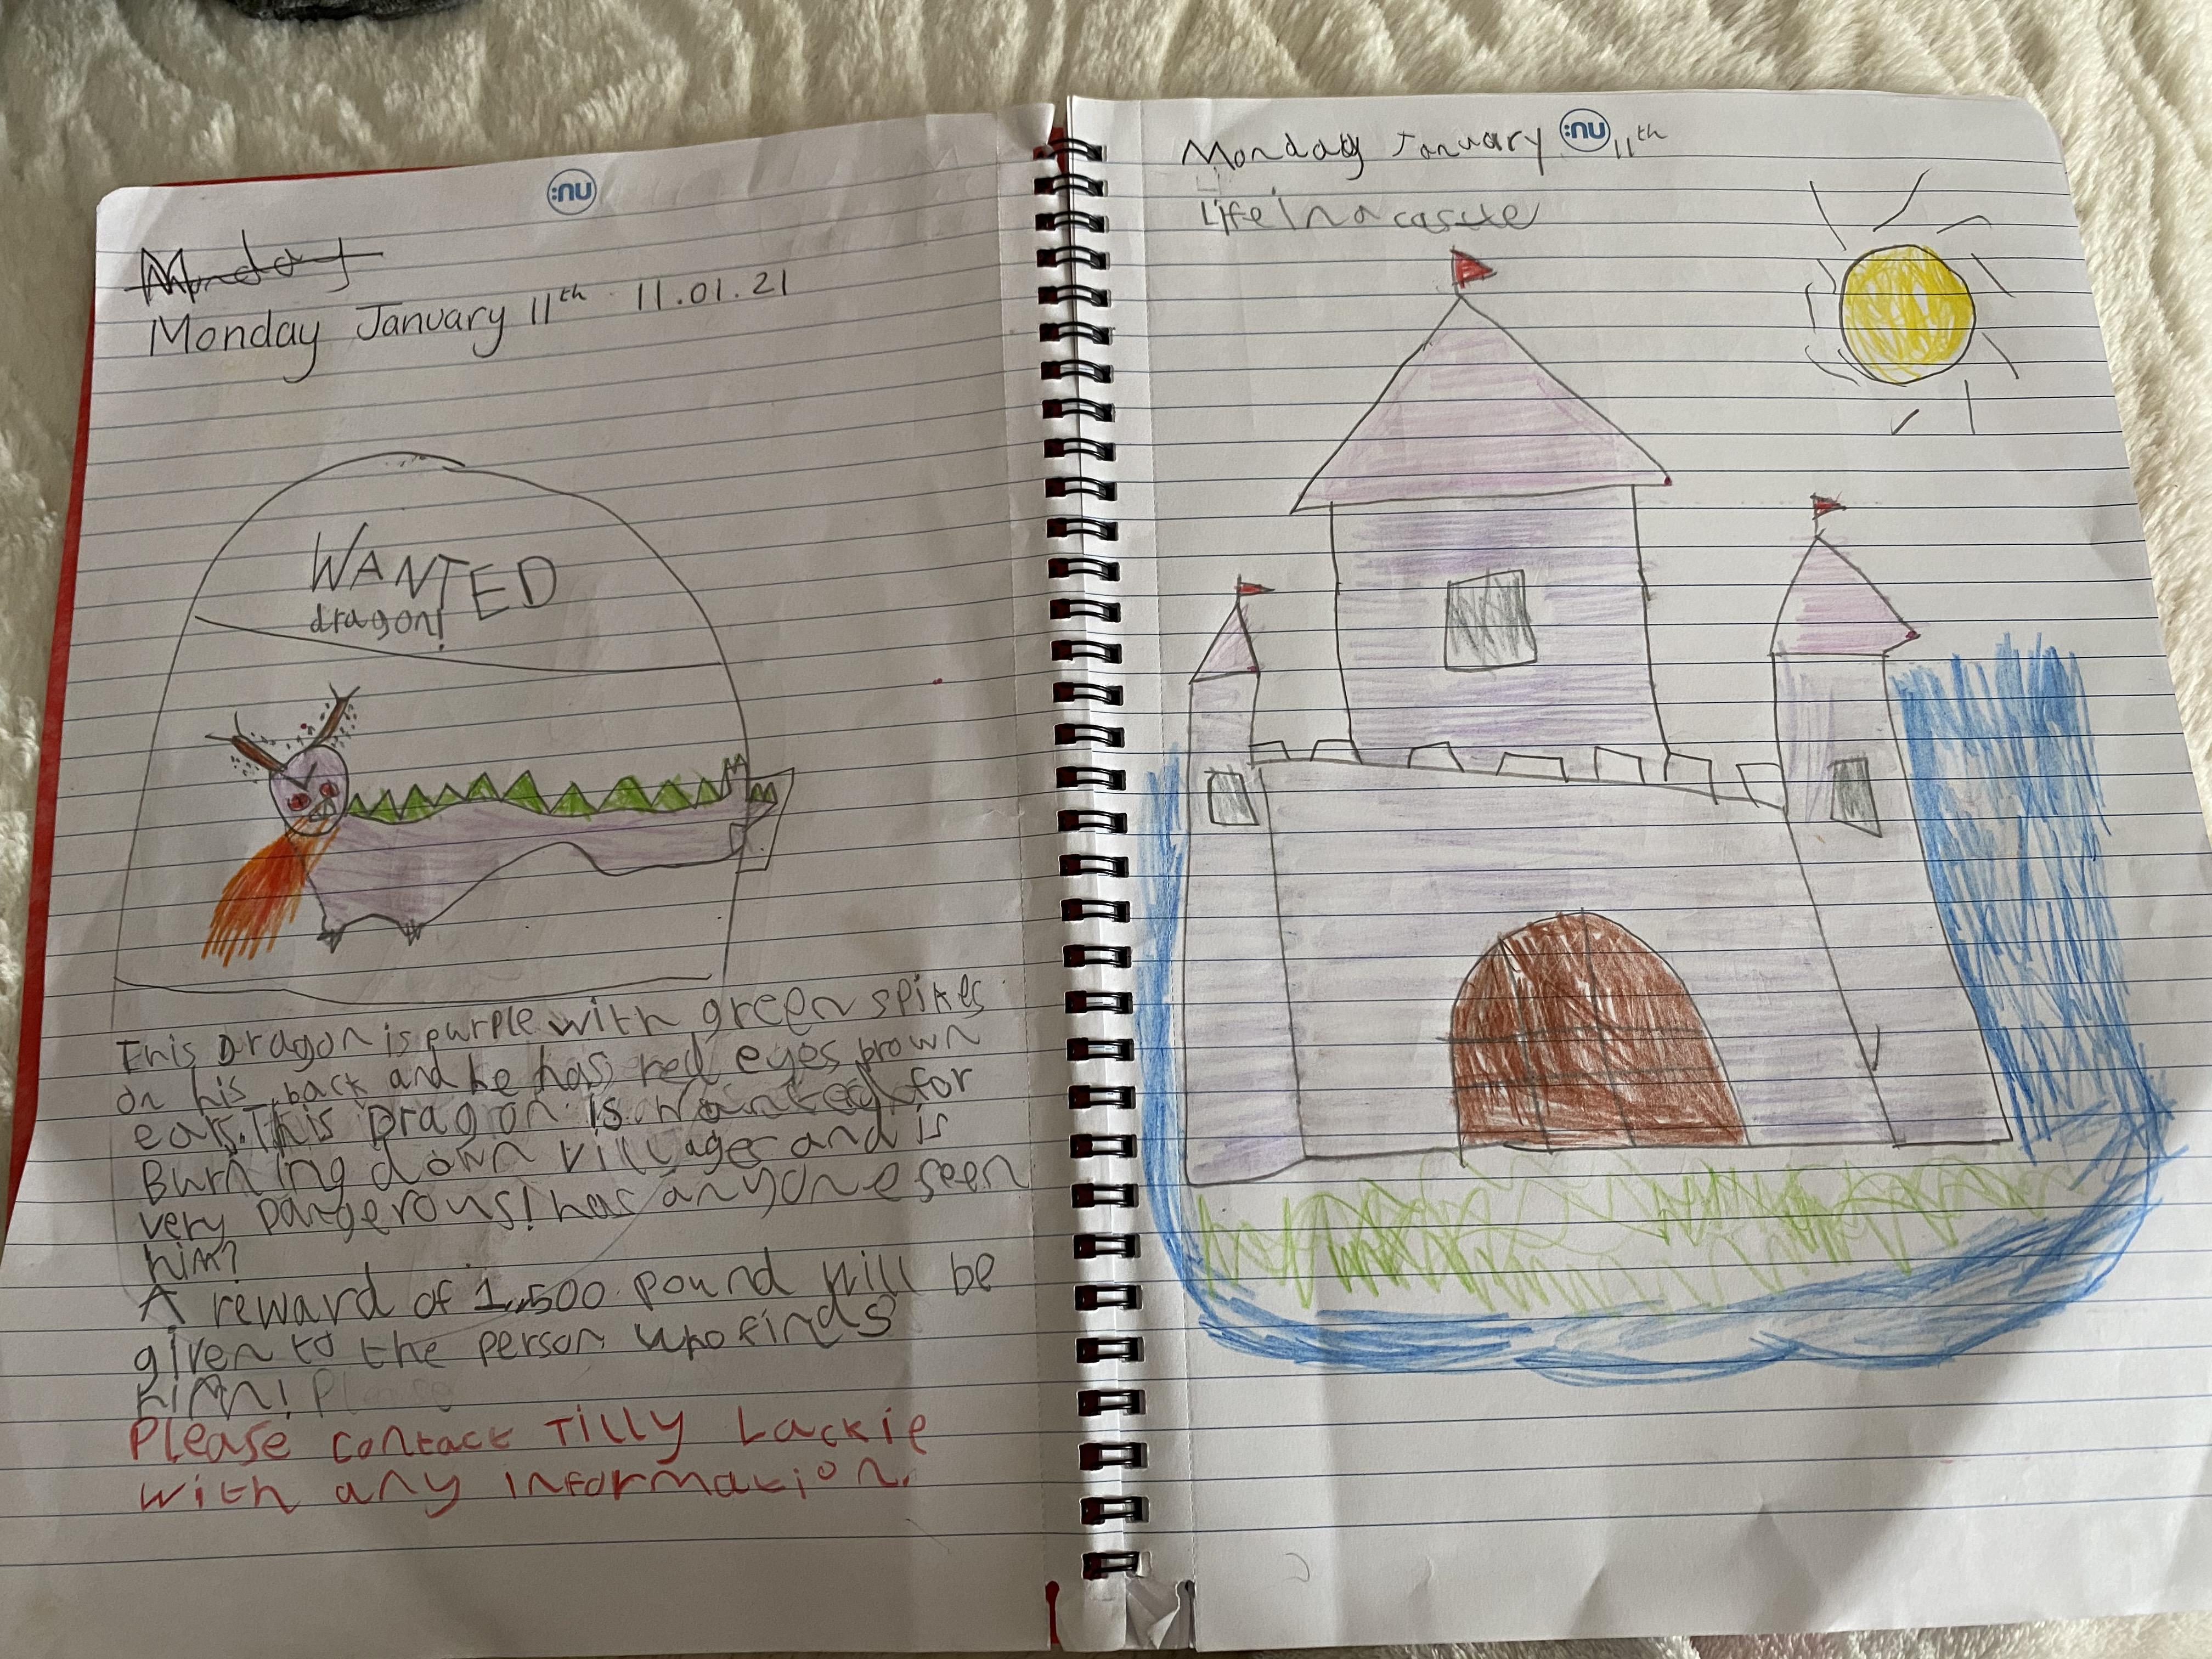 :nu
Monday
Monday January 11th 11.01.21
WANTED
dragon!
This Dragon is purple with green spikes
on his back and he has red eyes brown
ears. This Dragon is wanted for
Burning down villages and is
very Dangerous! has anyone seen
him?
A reward of 1,500 pound will be
given to the person who finds
him! Please
Please contact Tilly Lackie
with any information.
:nu
Monday January 11th
Life In a castle